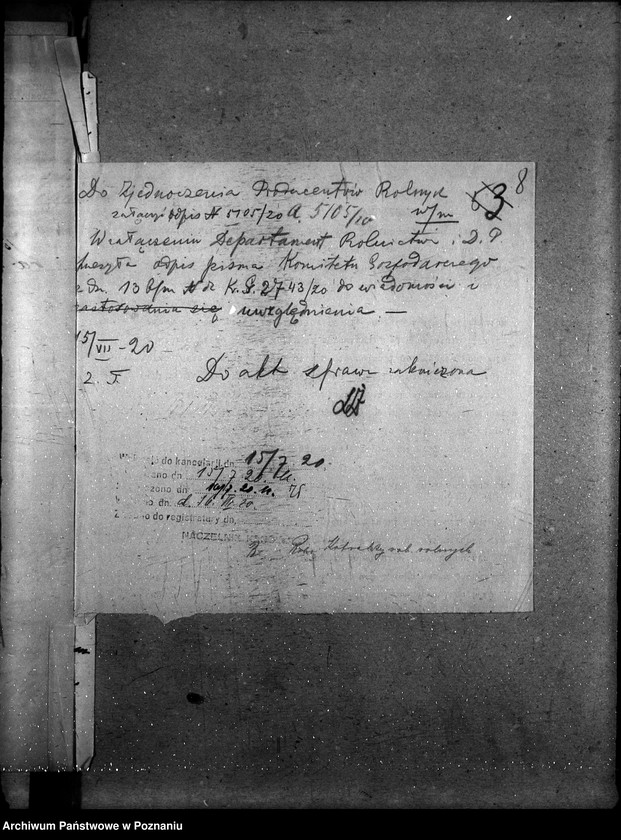 8
3
Do Zjednoczenia Producentów Rolnych
załączyć odpis № 5105/20 A. 5105/20 w/m
W załączeniu Departament Rolnictwa i D. P
odpis pisma Komitetu Gospodarczego
dn. 13 b/m № dz K. G. 2743/20 do wiadomości i
się uwzględnienia —
15/VII-20
2. T. Do akt sprawa zakończona
do kancelarii dn. 15/7. 20.
ano dn. 15/7 20
zono dn.
dn. d. 
no do registratury dn.
NACZELNIK
rolnych
Archiwum Państwowe w Poznaniu